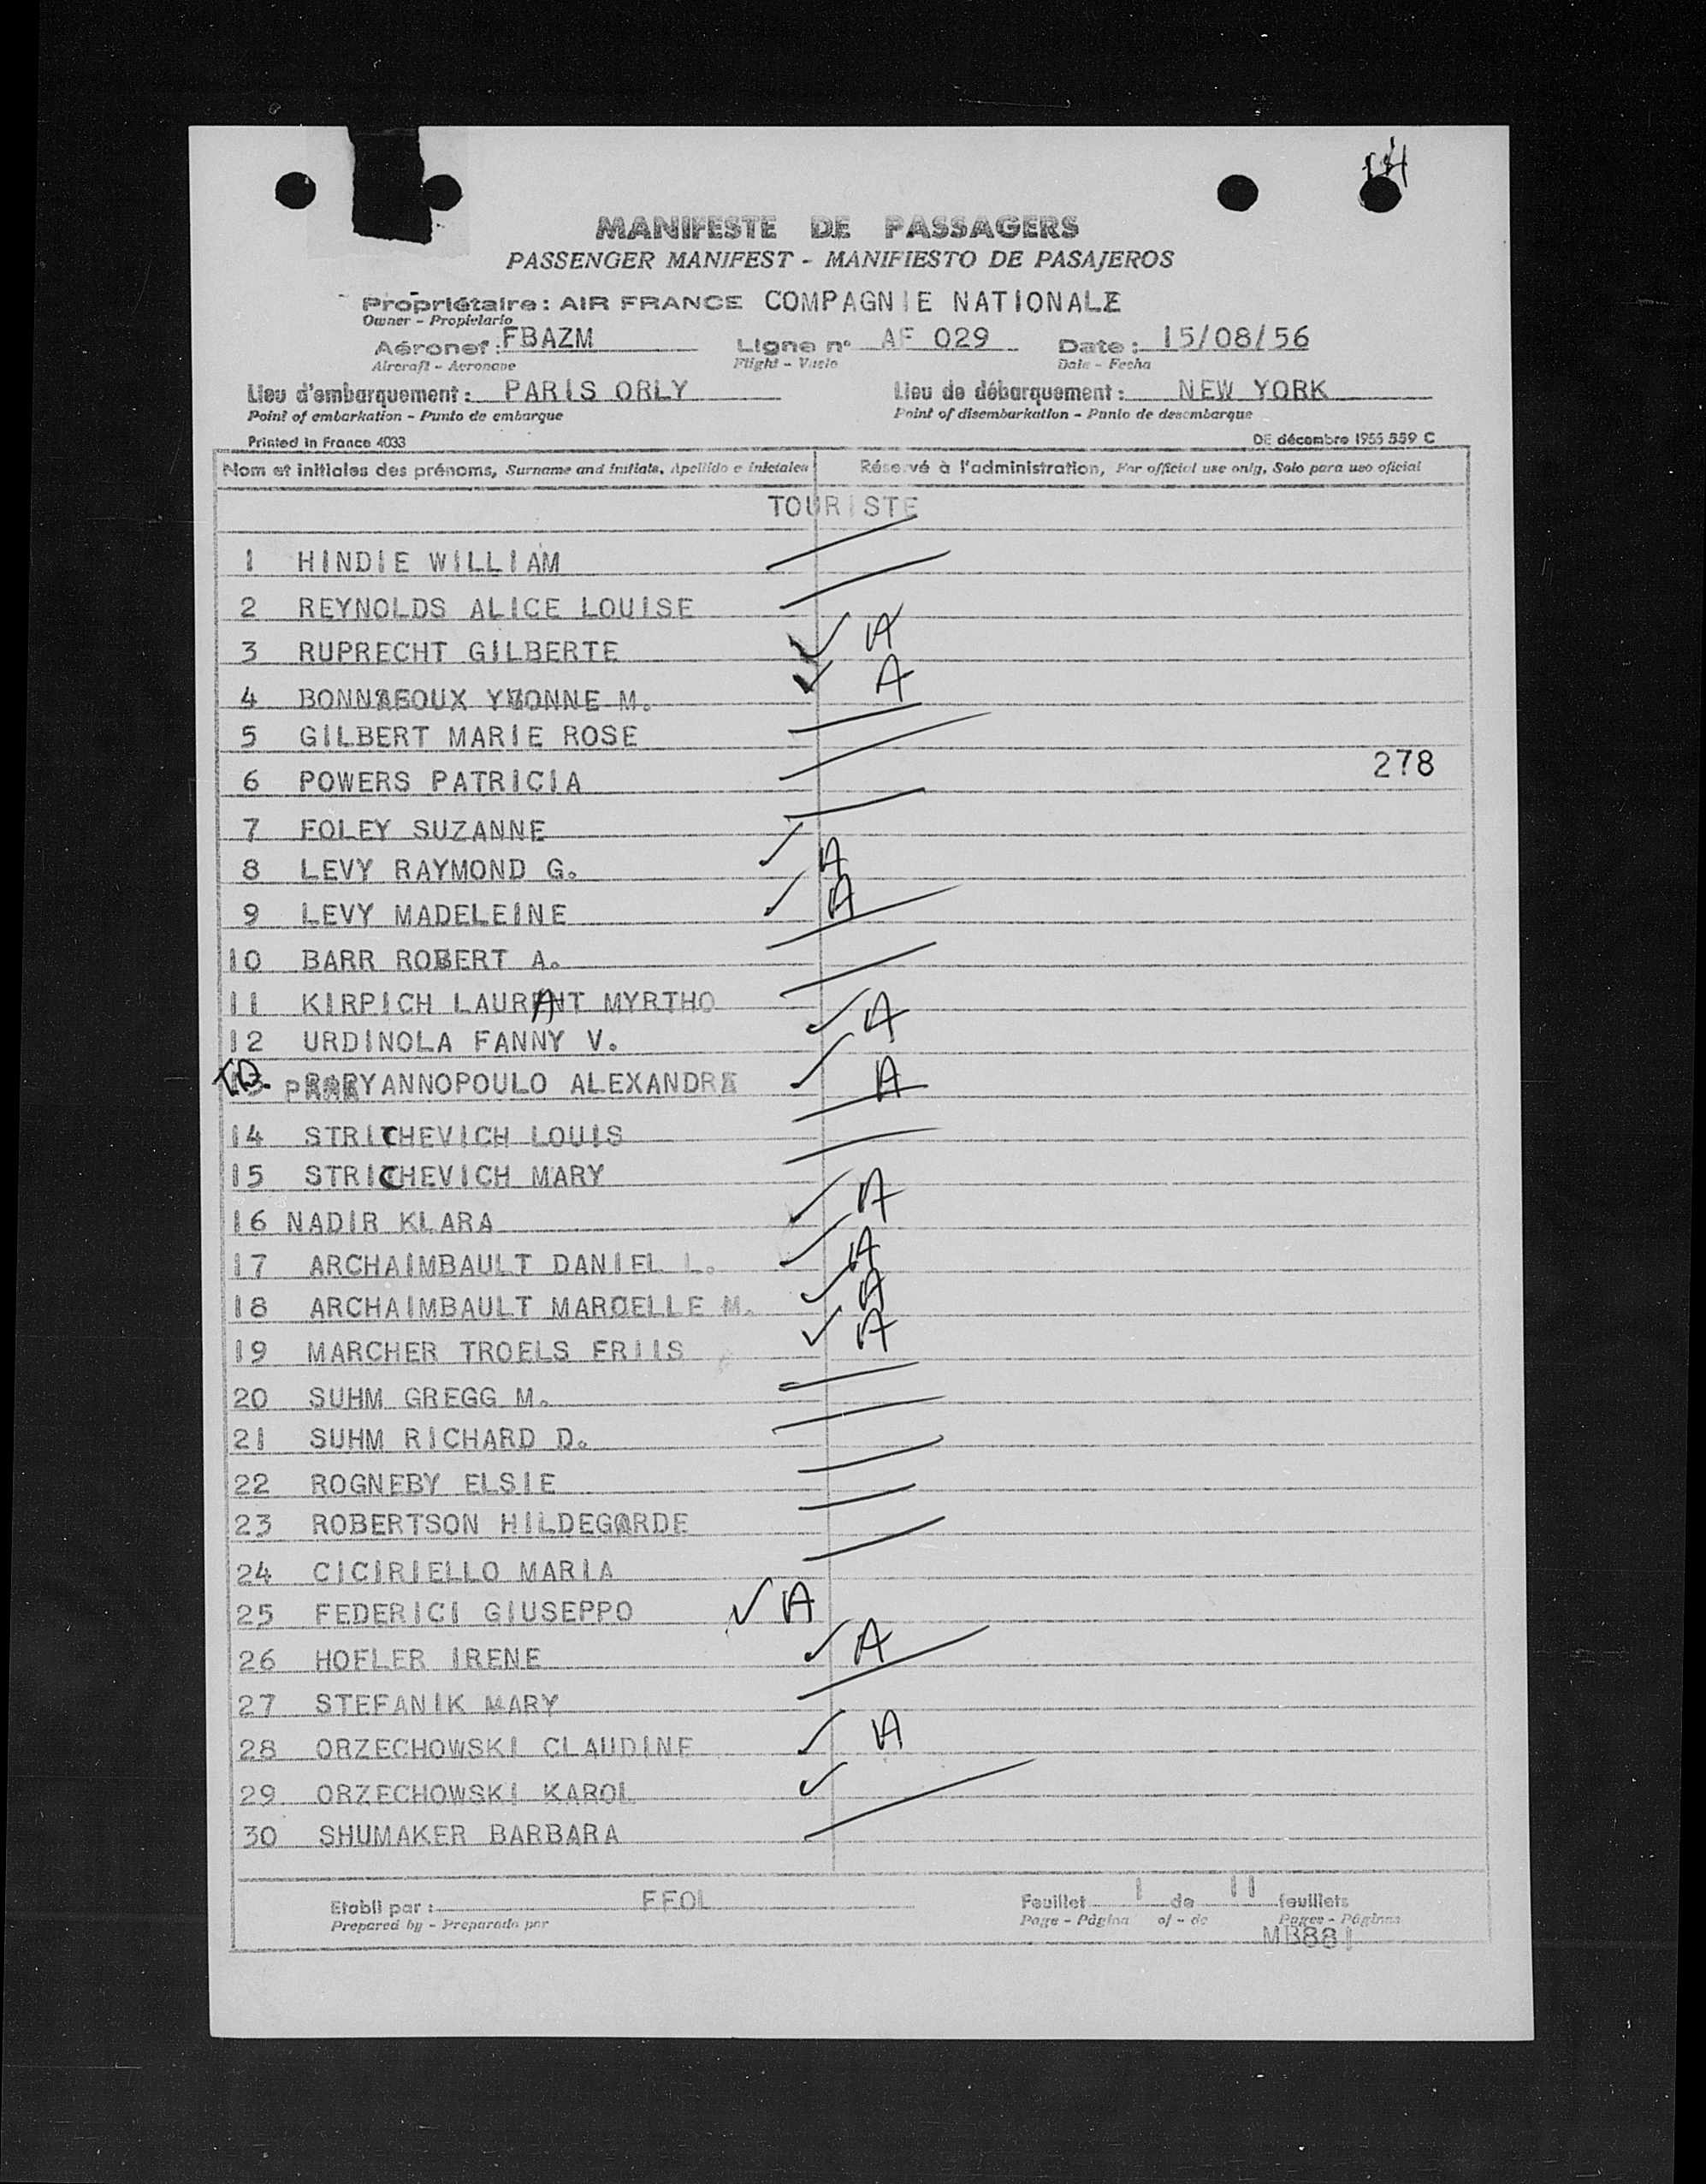 MANIFESTE DE PASSAGERS
PASSENGER MANIFEST - MANIFIESTO DE PASAJEROS
Propriétaire : AIR FRANCE COMPAGNIE NATIONALE
Owner - Propietario
Aéronef : FBAZM Ligne n° AF 029 Date : 15/08/56
Aircraft - Aeronave Flight - Vuelo Date - Fecha
Lieu d'embarquement : PARIS ORLY Lieu de débarquement : NEW YORK
Point of embarkation - Punto de embarque Point of disembarkation - Punto de desembarque
Printed in France 4033 DE décembre 1955 559 C
Nom et initiales des prénoms, Surname and initials, Apellido e iniciales Réservé à l'administration, For official use only, Solo para uso oficial
TOURISTE
1 HINDIE WILLIAM
2 REYNOLDS ALICE LOUISE
3 RUPRECHT GILBERTE ✓ A
4 YVONNE M. ✓ A
5 GILBERT MARIE ROSE
6 POWERS PATRICIA
278
7 FOLEY SUZANNE
8 LEVY RAYMOND G. ✓ A
9 LEVY MADELEINE ✓ A
10 BARR ROBERT A.
11 KIRPICH LAURANT MYRTHO
12 URDINOLA FANNY V. ✓ A
13 ALEXANDRE ✓ A
14 STRICHEVICH LOUIS
15 STRICHEVICH MARY
16 NADIR KLARA ✓ A
17 ARCHAIMBAULT DANIEL L. ✓ A
18 ARCHAIMBAULT MARCELLE M. ✓ A
19 MARCHER TROELS FRIIS ✓ A
20 SUHM GREGG M.
21 SUHM RICHARD D.
22 ROGNEBY ELSIE
23 ROBERTSON HILDEGARDE
24 CICIRIELLO MARIA
25 FEDERICI GIUSEPPO ✓ A
26 HOFLER IRENE ✓ A
27 STEFANIK MARY
28 ORZECHOWSKI CLAUDINE ✓ A
29 ORZECHOWSKI KAROL ✓
30 SHUMAKER BARBARA
Etabli par : FFOL Feuillet 1 de 11 feuillets
Prepared by - Preparado por Page - Página of - de Pages - Páginas
MB881